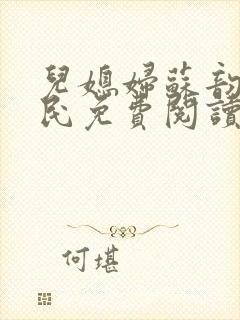 兒媳婦蘇韵
民免費閱讀
何堪